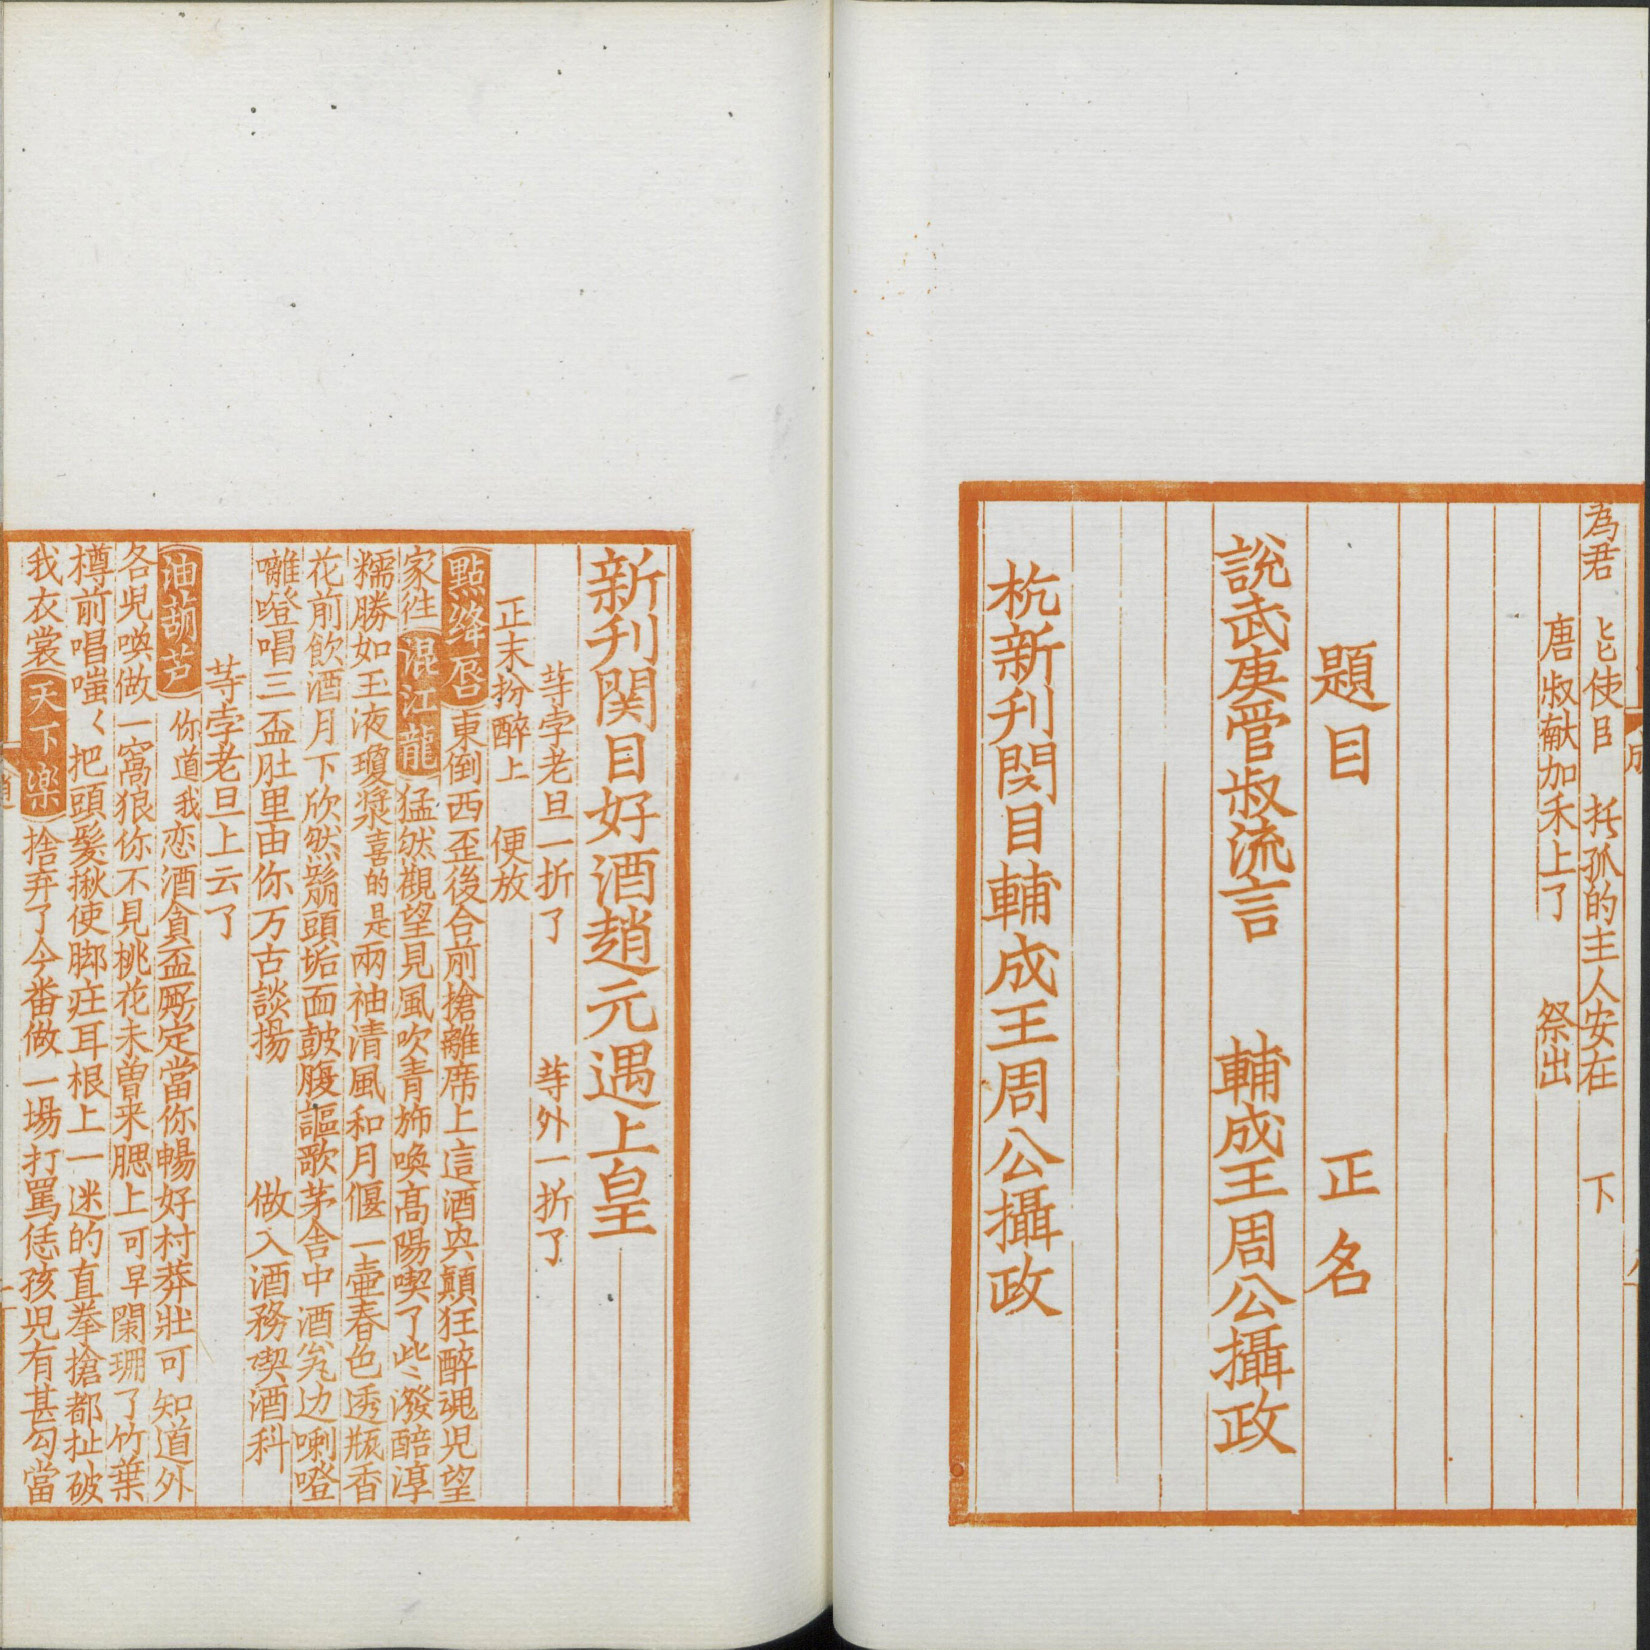 為君 使臣 托孤的主人安在 下
唐叔献加禾上了 祭出
題目 正名
說武庚管叔流言 輔成王周公攝政
杭新刊関目輔成王周公攝政
新刊関目好酒趙元遇上皇
等孛老旦一折了 等外一折了
正末扮醉上 便放
點絳唇 東倒西歪後合前搶離席上這酒興顛狂醉魂児望
家徃 混江龍 猛然觀望見風吹青斾喚高陽喫了些潑醅淳
糯勝如玉液瓊漿喜的是兩袖清風和月偃一壷春色透瓶香
花前飲酒月下欣然鬅頭垢面鼓腹謳歌茅舍中酒瓮边喇噔
囄噔唱三盃肚里由你万古談揚 做入酒務喫酒科
等孛老旦上云了
油葫芦 你道我恋酒貪盃厮定當你暢好村莽壯可知道外
各児喚做一窩狼你不見桃花未曽来腮上可早闌珊了竹葉
樽前唱嗤〱把頭髮揪使脚㽵耳根上一迷的直拳搶都扯破
我衣裳 天下楽 捨弃了今番做一場打罵恁孩児有甚勾當